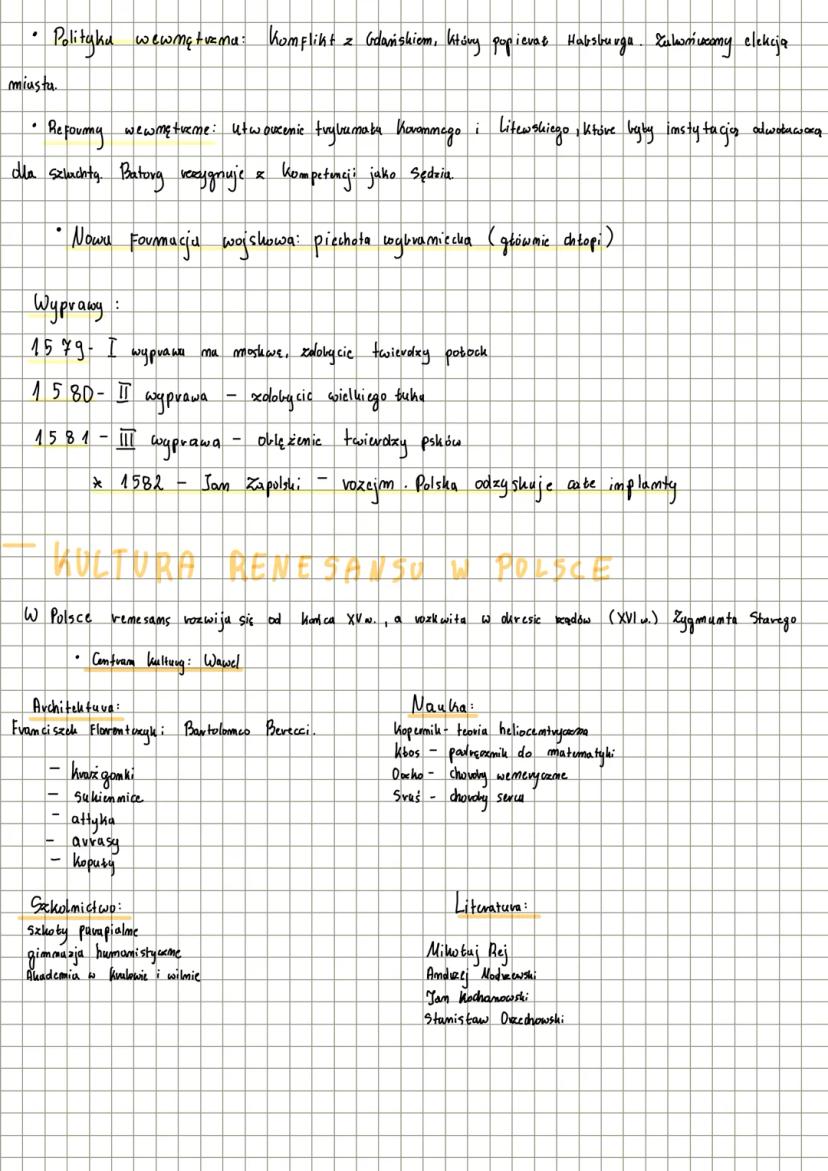 • Polityka wewnętrzna: Konflikt z Gdańskiem, który popierał Habsburga. Zakończony elekcją
miasta.
• Reformy wewnętrzne: utworzenie trybunału Koronnego i Litewskiego, które były instytacją odwoławczą
dla szlachty. Batory rezygnuje z kompetencji jako sędzia.
• Nowa Formacja wojskowa: piechota wybraniecka (głównie chłopi)
Wyprawy:
1579- I wyprawa na moskwę, zdobycie twierdzy połock
1580- II wyprawa – zdobycie wielkiego łuku
1581 – III wyprawa – oblężenie twierdzy psków
* 1582 – Jam Zapolski – rozejm. Polska odzyskuje całe implanty
– KULTURA RENESANSU W POLSCE
W Polsce renesans rozwija się od końca XV w., a rozkwita w okresie rządów (XVI w.) Zygmunta Starego
• Centrum kultury: Wawel
Architektura:
Franciszek Florentczyk i Bartolomeo Berecci.
– krużganki
– sukiennice
– attyka
– arrasy
– kopuły
Nauka:
Kopernik- teoria heliocentryczna
Kłos – podręcznik do matematyki
Oczko – choroby weneryczne
Struś – choroby serca
Szkolnictwo:
Szkoły parapialne
gimnazja humanistyczne
Akademia w Krakowie i wilnie
Literatura:
Mikołaj Rej
Andrzej Modrzewski
Jan Kochanowski
Stanisław Orzechowski